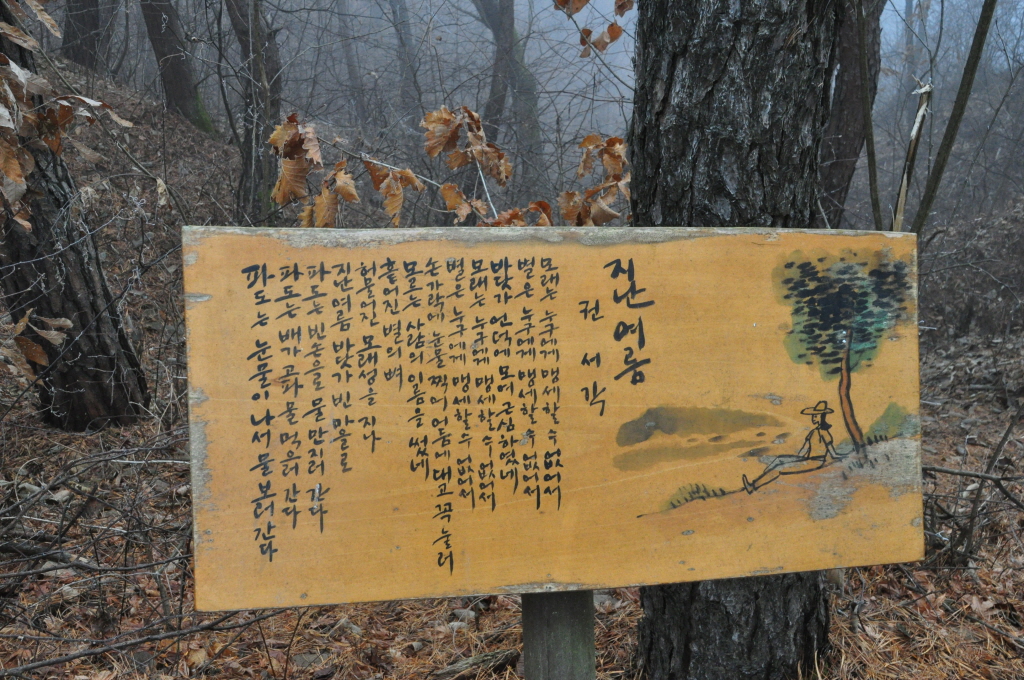 지난 여름
권 서 각
모래는 누구에게 맹세할 수 없어서
별은 누구에게 맹세할 수 없어서
바닷가 언덕에 모여 근심하였네
모래는 누구에게 맹세할 수 없어서
별은 누구에게 맹세할 수 없어서
손가락에 눈물 찍어 어둠에 대고 꼭 눌러
모르는 사람의 이름을 썼네
흩어진 별의 뼈
허물어진 모래성을 지나
지난 여름 바닷가 빈 마을로
파도는 빈손을 물 만지러 간다
파도는 배가 고파 물 먹으러 간다
파도는 눈물이 나서 물 보러 간다